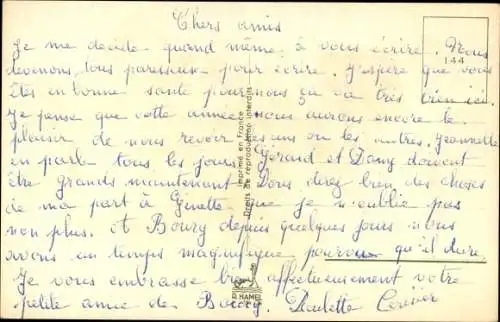 Chers amis
Je me décide quand même à vous écrire. Nous
144
devenons tous paresseux pour écrire. J'espère que vous
êtes en bonne santé pour nous ça va très bien ici.
Je pense que cette année nous aurons encore le
plaisir de nous revoir les uns ou les autres. Jeannette
en parle tous les jours. Gérard et Dany doivent
être grands maintenant. Vous direz bien des choses
de ma part à Ginette que je n'oublie pas
non plus. A Bourg depuis quelques jours nous
avons un temps magnifique pourvu qu'il dure.
Je vous embrasse bien affectueusement votre
petite amie de Bourg. Paulette
Imprimé en France
Droits de reproduction interdits
R. HAMEL